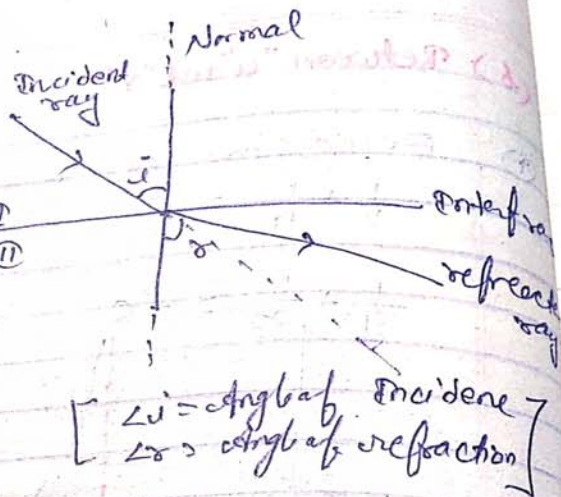 Normal
Incident
ray
i
I
II
r
refracte
ray
[ ∠i = Angle of Incidene ]
[ ∠r = Angle of refraction ]